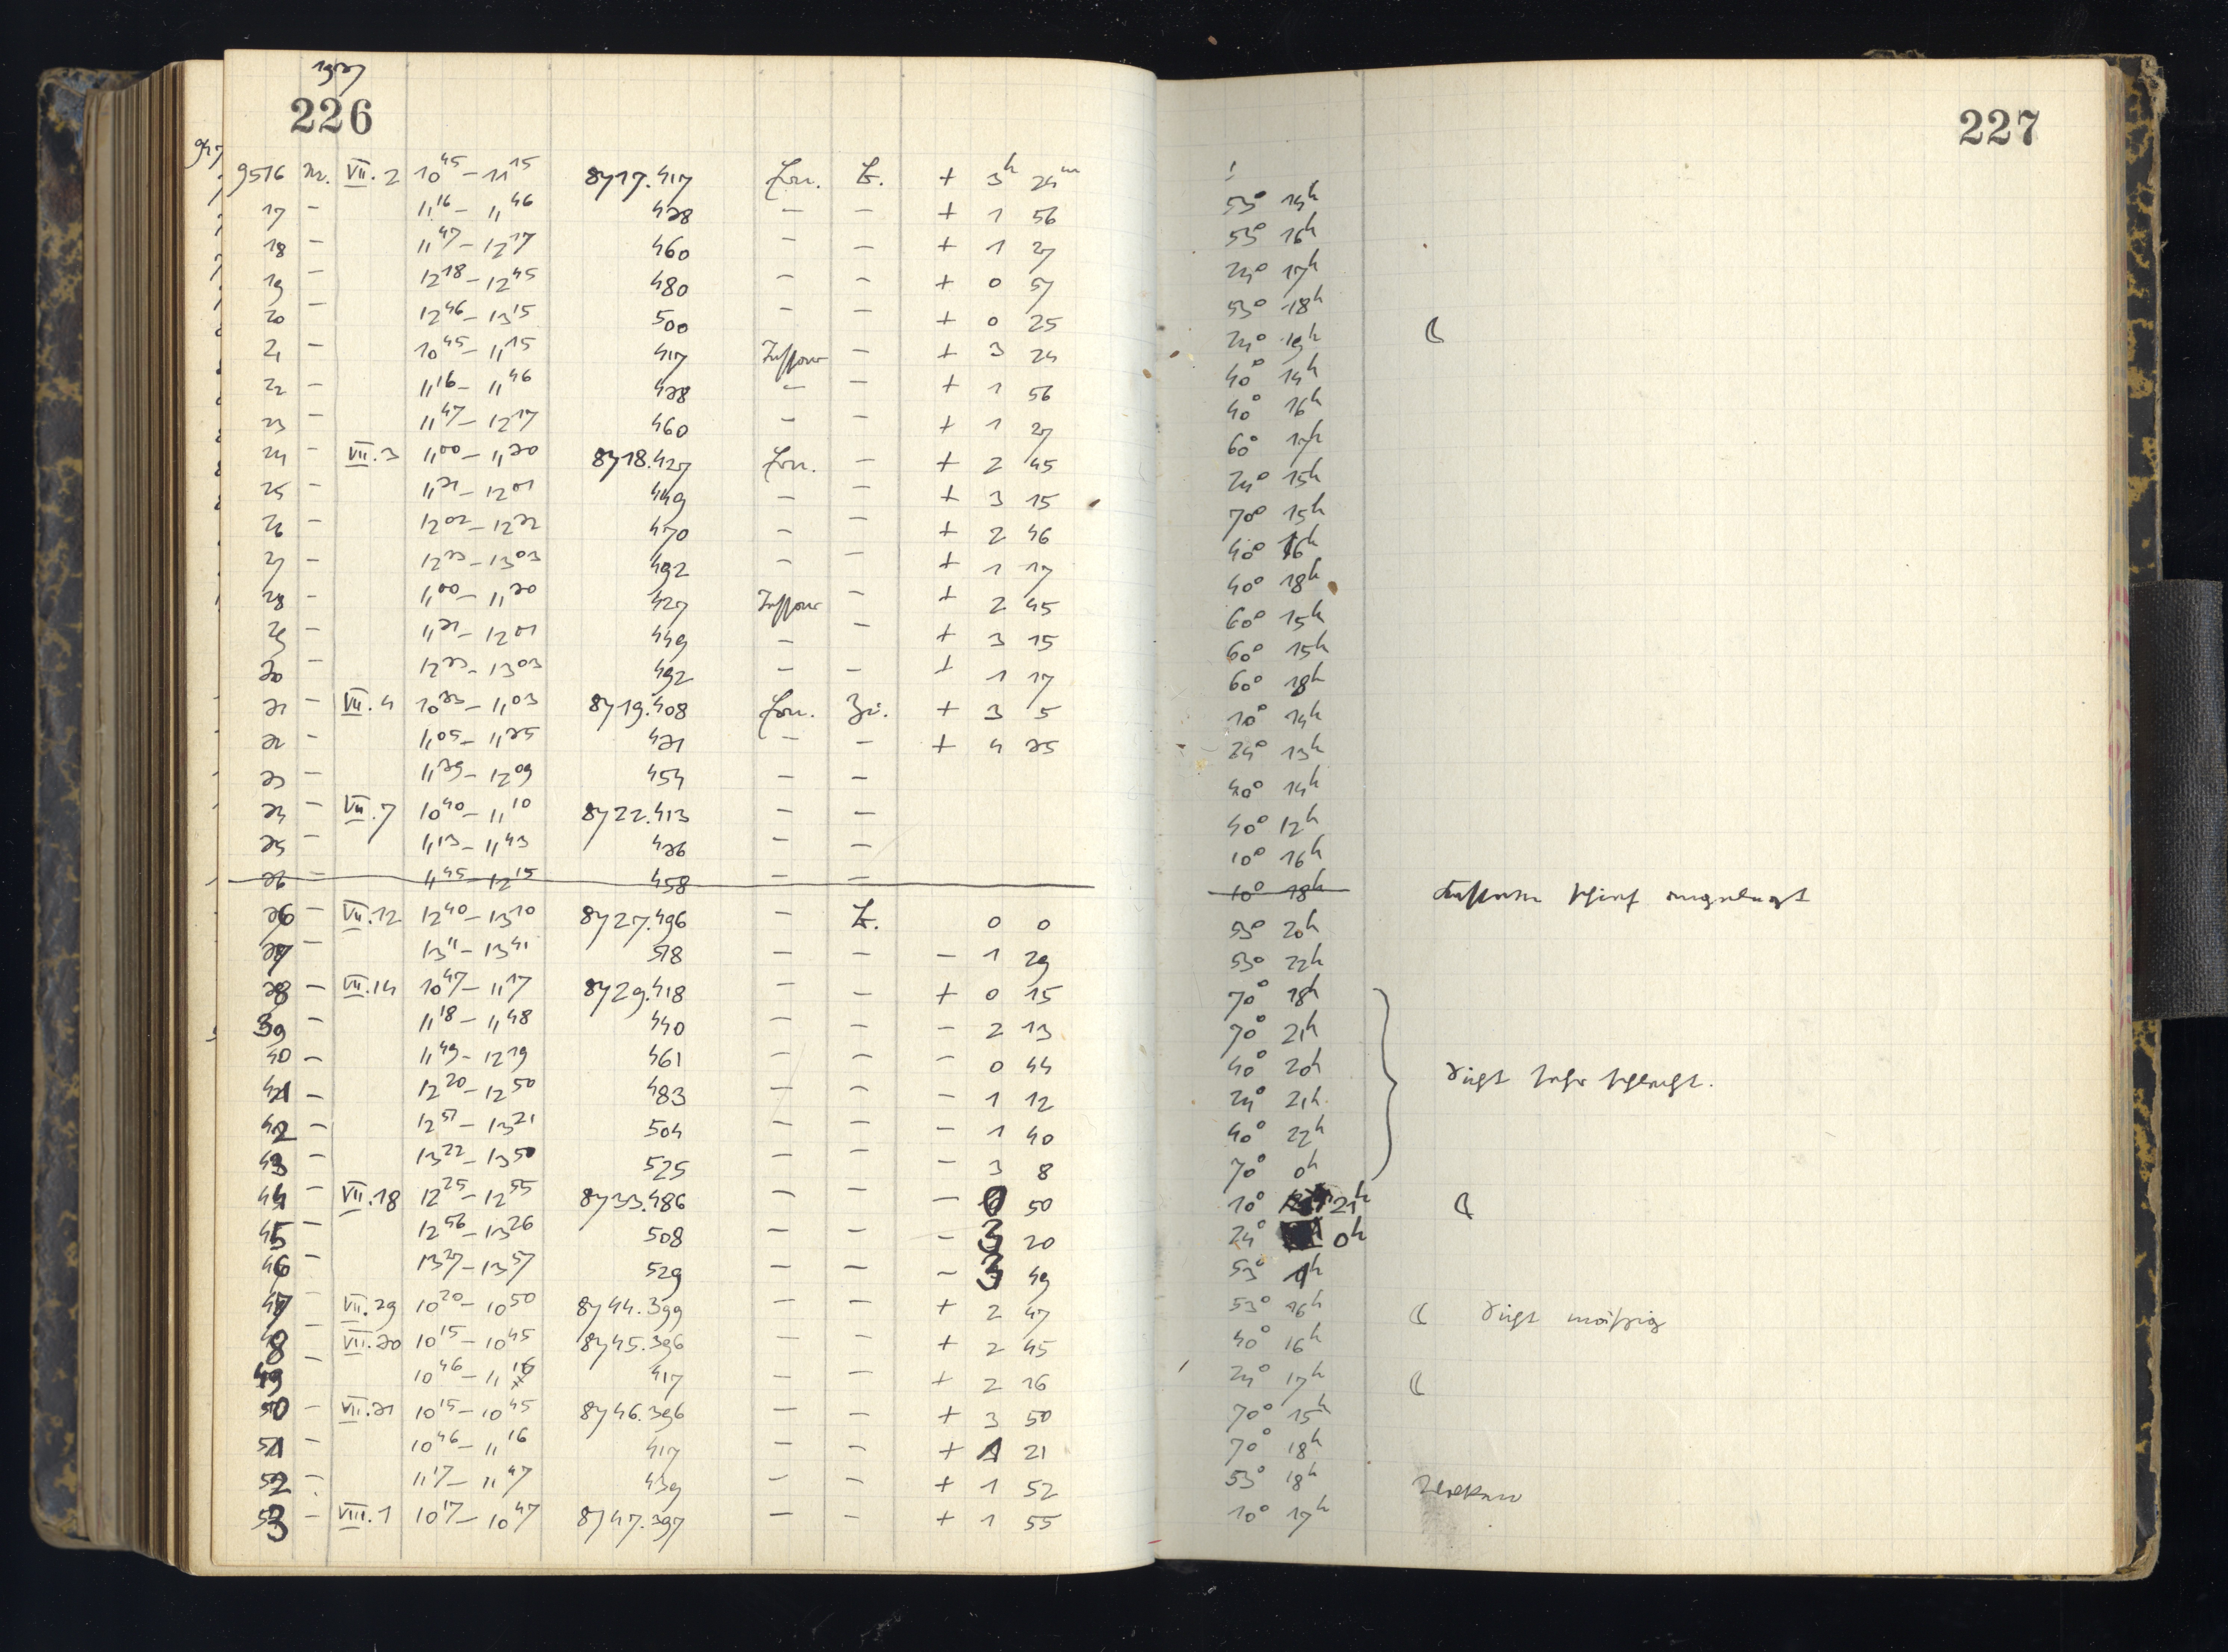 1937
226
9516 M. VII.2 10⁴⁵ – 11¹⁵ 8717.417 Z. + 3ʰ 24ᵐ
17 – 11¹⁶ – 11⁴⁶ 438 – – + 1 56
18 – 11⁴⁷ – 12¹⁷ 460 – – + 1 27
19 – 12¹⁸ – 12⁴⁵ 480 – – + 0 57
20 – 12⁴⁶ – 13¹⁵ 500 – – + 0 25
21 – 10⁴⁵ – 11¹⁵ 417 – + 3 24
22 – 11¹⁶ – 11⁴⁶ 438 – – + 1 56
23 – 11⁴⁷ – 12¹⁷ 460 – + 1 27
24 – VII.3 11⁰⁰ – 11³⁰ 8718.427 – + 2 45
25 – 11³¹ – 12⁰¹ 449 – – + 3 15
26 – 12⁰² – 12³² 470 – – + 2 46
27 – 12³³ – 13⁰³ 492 – – + 1 17
28 – 11⁰⁰ – 11³⁰ 427 – + 2 45
29 – 11³¹ – 12⁰¹ 449 – – + 3 15
30 – 12³³ – 13⁰³ 492 – – + 1 17
31 – VII.4 10³³ – 11⁰³ 8719.408 + 3 5
32 – 11⁰⁵ – 11³⁵ 431 – – + 4 35
33 – 11³⁹ – 12⁰⁹ 454 – –
34 – VII.7 10⁴⁰ – 11¹⁰ 8722.413 – –
35 – 11¹³ – 11⁴³ 436 – –
36 – 11⁴⁵ – 12¹⁵ 458 – –
36 – VII.12 12⁴⁰ – 13¹⁰ 8727.496 – Z. 0 0
37 – 13¹¹ – 13⁴¹ 518 – – – 1 29
38 – VII.14 10⁴⁷ – 11¹⁷ 8729.418 – – + 0 15
39 – 11¹⁸ – 11⁴⁸ 440 – – – 2 13
40 – 11⁴⁹ – 12¹⁹ 461 – – – 0 44
41 – 12²⁰ – 12⁵⁰ 483 – – – 1 12
42 – 12⁵¹ – 13²¹ 504 – – – 1 40
43 – 13²² – 13⁵⁰ 525 – – – 3 8
44 – VII.18 12²⁵ – 12⁵⁵ 8733.486 – – – 0 50
45 – 12⁵⁶ – 13²⁶ 508 – – – 3 20
46 – 13²⁷ – 13⁵⁷ 529 – – – 3 49
47 – VII.29 10²⁰ – 10⁵⁰ 8744.399 – – + 2 47
48 – VII.30 10¹⁵ – 10⁴⁵ 8745.396 – – + 2 45
49 – 10⁴⁶ – 11¹⁶ 417 – – + 2 16
50 – VII.31 10¹⁵ – 10⁴⁵ 8746.396 – – + 3 50
51 – 10⁴⁶ – 11¹⁶ 417 – – + 1 21
52 – 11¹⁷ – 11⁴⁷ 439 – – + 1 52
53 – VIII.1 10¹⁷ – 10⁴⁷ 8747.397 – – + 1 55
227
53° 14ʰ
53° 16ʰ
24° 17ʰ
53° 18ʰ
24° 19ʰ ☾
40° 14ʰ
40° 16ʰ
60° 17ʰ
24° 15ʰ
70° 15ʰ
40° 16ʰ
40° 18ʰ
60° 15ʰ
60° 15ʰ
60° 18ʰ
10° 14ʰ
24° 13ʰ
40° 14ʰ
40° 12ʰ
10° 16ʰ
10° 18ʰ
53° 20ʰ
53° 22ʰ
70° 18ʰ
70° 21ʰ
40° 20ʰ
24° 21ʰ
40° 22ʰ
70° 0ʰ
sehr schlecht.
10° 21ʰ ☾
24° 0ʰ
53° 1ʰ
53° 16ʰ ☾ mäßig
40° 16ʰ
24° 17ʰ ☾
70° 15ʰ
70° 18ʰ
53° 18ʰ
10° 17ʰ